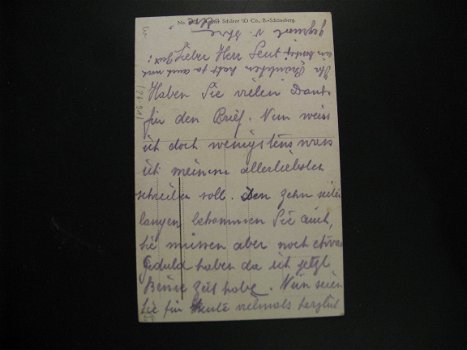 Schürer & Co., B.-Schöneberg.
Lieber Herr Leut
Haben Sie vielen Dank
für den Brief. Nun weiss
ich doch wenigstens was
ich meinem allerliebsten
schreiben soll. Den zehn seiten
langen bekommen Sie auch,
Sie müssen aber noch etwas
Geduld haben da ich jetzt
keine zeit habe. Nun seien
Sie für Heute vielmals herzlich
gegrüsst v. Ihrer